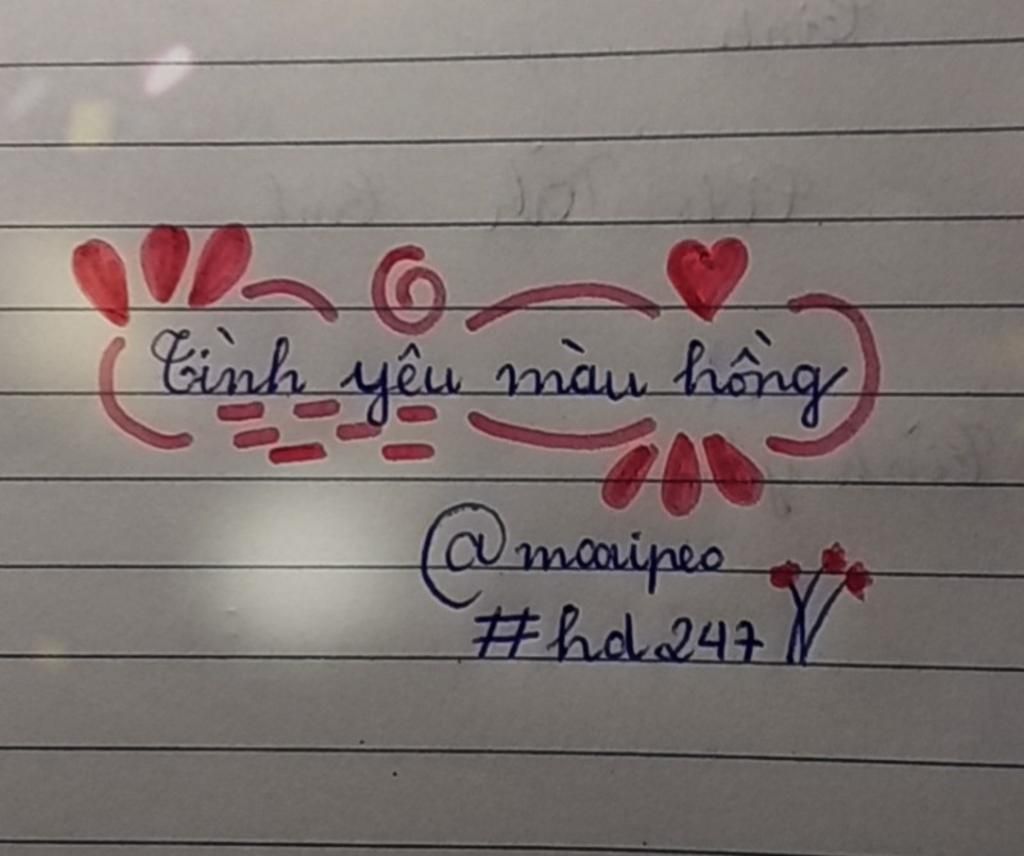 Tình yêu màu hồng
@moaipeo
#hd247